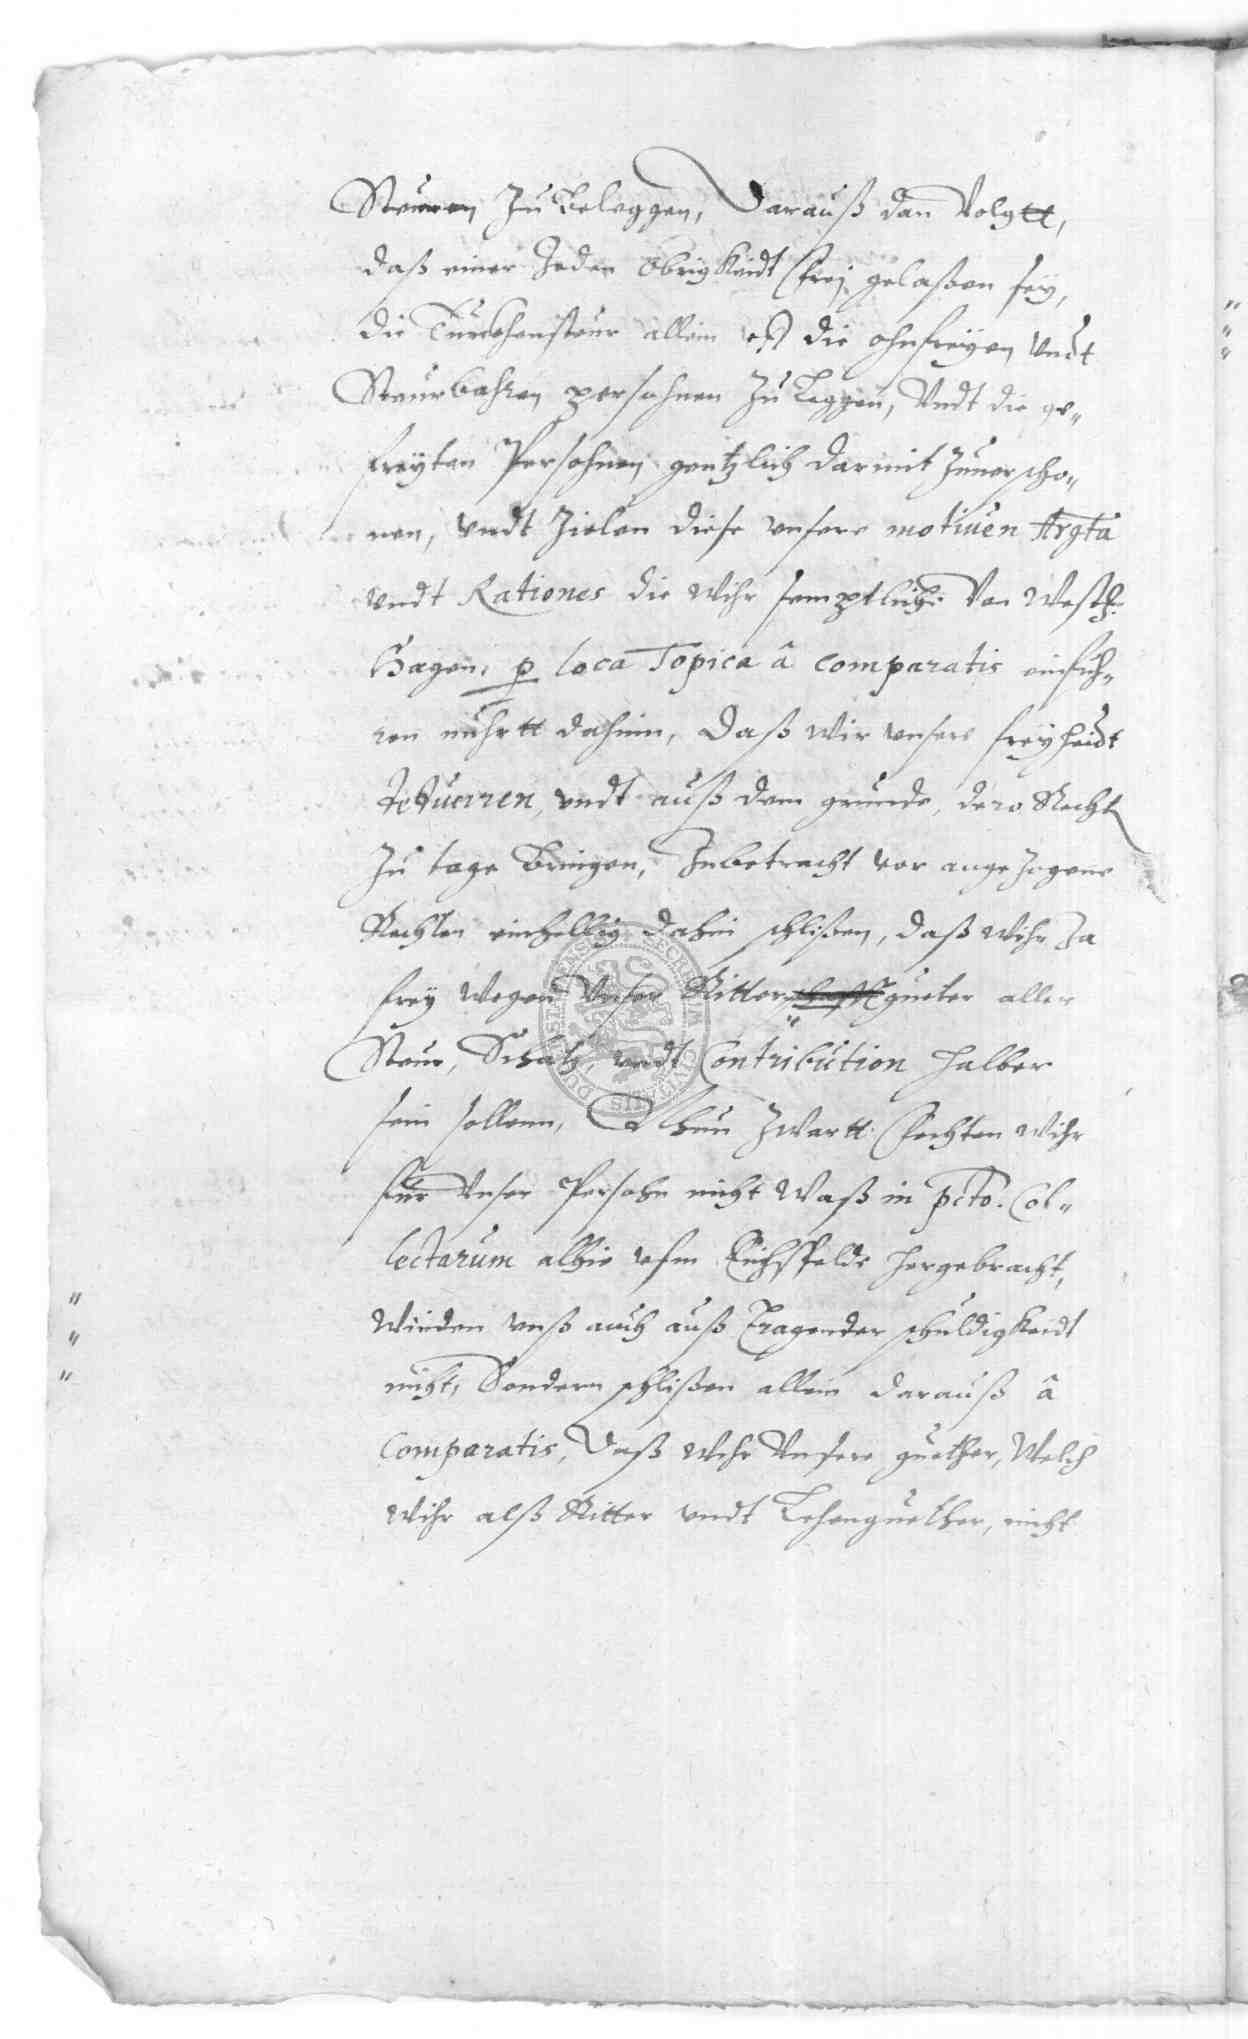 Steuren Zu Beleggen, Darauß dan Volgtt,
daß einer Jeden Obrigkeidt frej gelaßen sey,
die Türckensteur allein uff die ohnfreÿen Undt
Steurbahren persohnen Zu Leggen, Undt die ge„
freyten Persohnen gentzlich darmit Zuuerscho„
nen, Undt Zielen diese unsere motiuen Argta
Undt Rationes die Wihr semptliche Von Westh:
Hagen, p loca Topica â comparatis einfüh„
ren nuhrtt dahinn, Daß Wir unsere freyheidt
undt auß dem grunde, dero Recht
Zu tage Bringen, Inbetracht vor angezogene
Rechten einhellig dahin schlißen, daß Wihr Ja
frey Wegen Unser Ritter gueter aller
Steur, Schatz, undt Contribution halber
sein sollenn, Nhun Zwartt fechten Wihr
für Unser Persohn nicht Waß in pcto. Col„
lectarum alhie ufm Eichsfelde hergebracht,
Winden unß auch auß Tragender schuldigkeidt
nicht, Sondern schlißen allein darauß â
Comparatis, Daß Wihr Unsere guether, Welch
Wihr alß Ritter undt Lehenguether, nicht
"
"
"